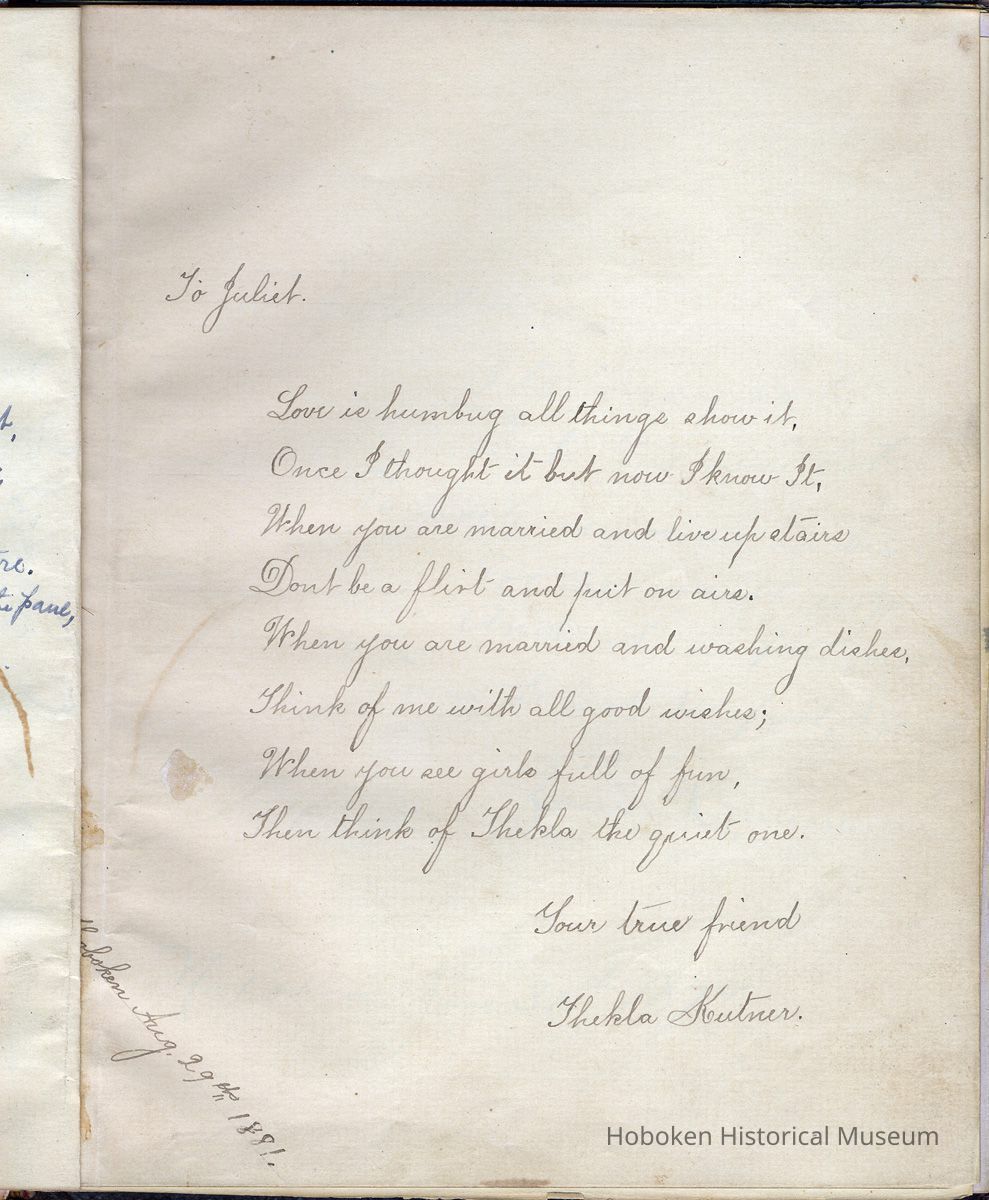 To Juliet.
Love is humbug all things show it,
Once I thought it but now I know It,
When you are married and live up stairs
Dont be a flirt and put on airs.
When you are married and washing dishes,
Think of me with all good wishes;
When you see girls full of fun,
Then think of Thekla the quiet one.
Your true friend
Thekla Kutner.
Hoboken Aug. 29th 1881.
Hoboken Historical Museum